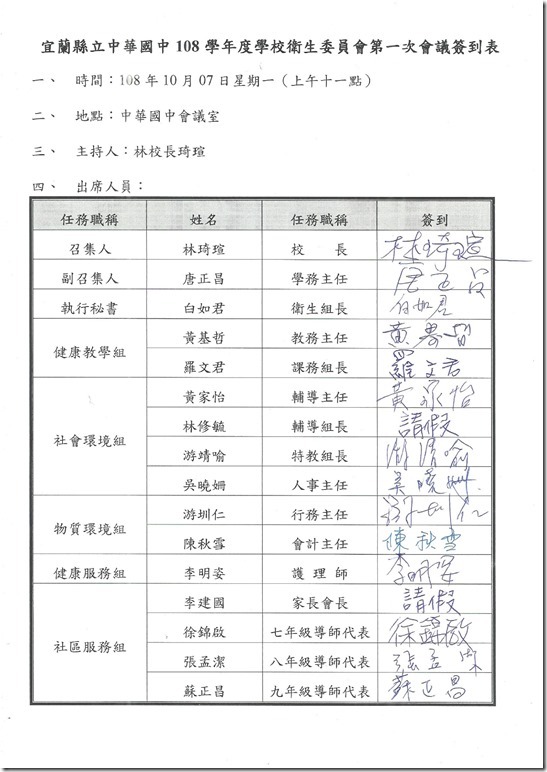 宜蘭縣立中華國中 108 學年度學校衛生委員會第一次會議簽到表
一、 時間：108 年 10 月 07 日星期一（上午十一點）
二、 地點：中華國中會議室
三、 主持人：林校長琦瑄
四、 出席人員：
任務職稱 姓名 任務職稱 簽到
召集人 林琦瑄 校 長 林琦瑄
副召集人 唐正昌 學務主任 唐正昌
執行秘書 白如君 衛生組長 白如君
健康教學組 黃基哲 教務主任 黃基哲
羅文君 課務組長 羅文君
社會環境組 黃家怡 輔導主任 黃家怡
林修毓 輔導組長 請假
游靖喻 特教組長 游靖喻
吳曉姍 人事主任 吳曉姍
物質環境組 游圳仁 行務主任 游圳仁
陳秋雪 會計主任 陳秋雪
健康服務組 李明姿 護 理 師 李明姿
社區服務組 李建國 家長會長 請假
徐錦啟 七年級導師代表 徐錦啟
張孟潔 八年級導師代表 張孟潔
蘇正昌 九年級導師代表 蘇正昌